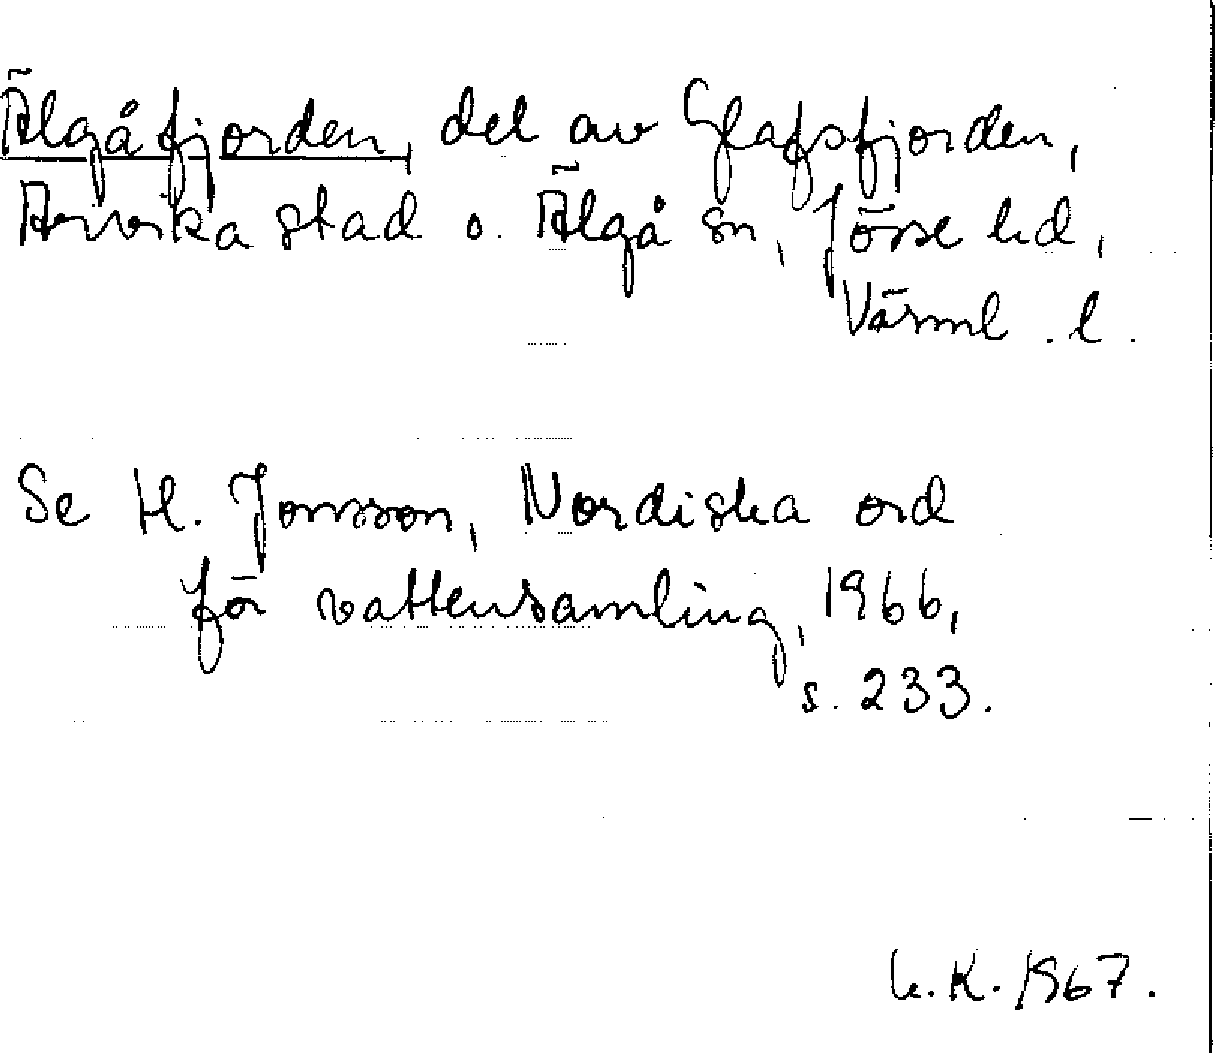 Älgåfjorden, del av Glafsfjorden,
Arvika stad o. Älgå sn, Jösse hd,
Värml. l.
Se H. Jonsson, Nordiska ord
för vattensamling, 1966,
s. 233.
L.K. 1967.